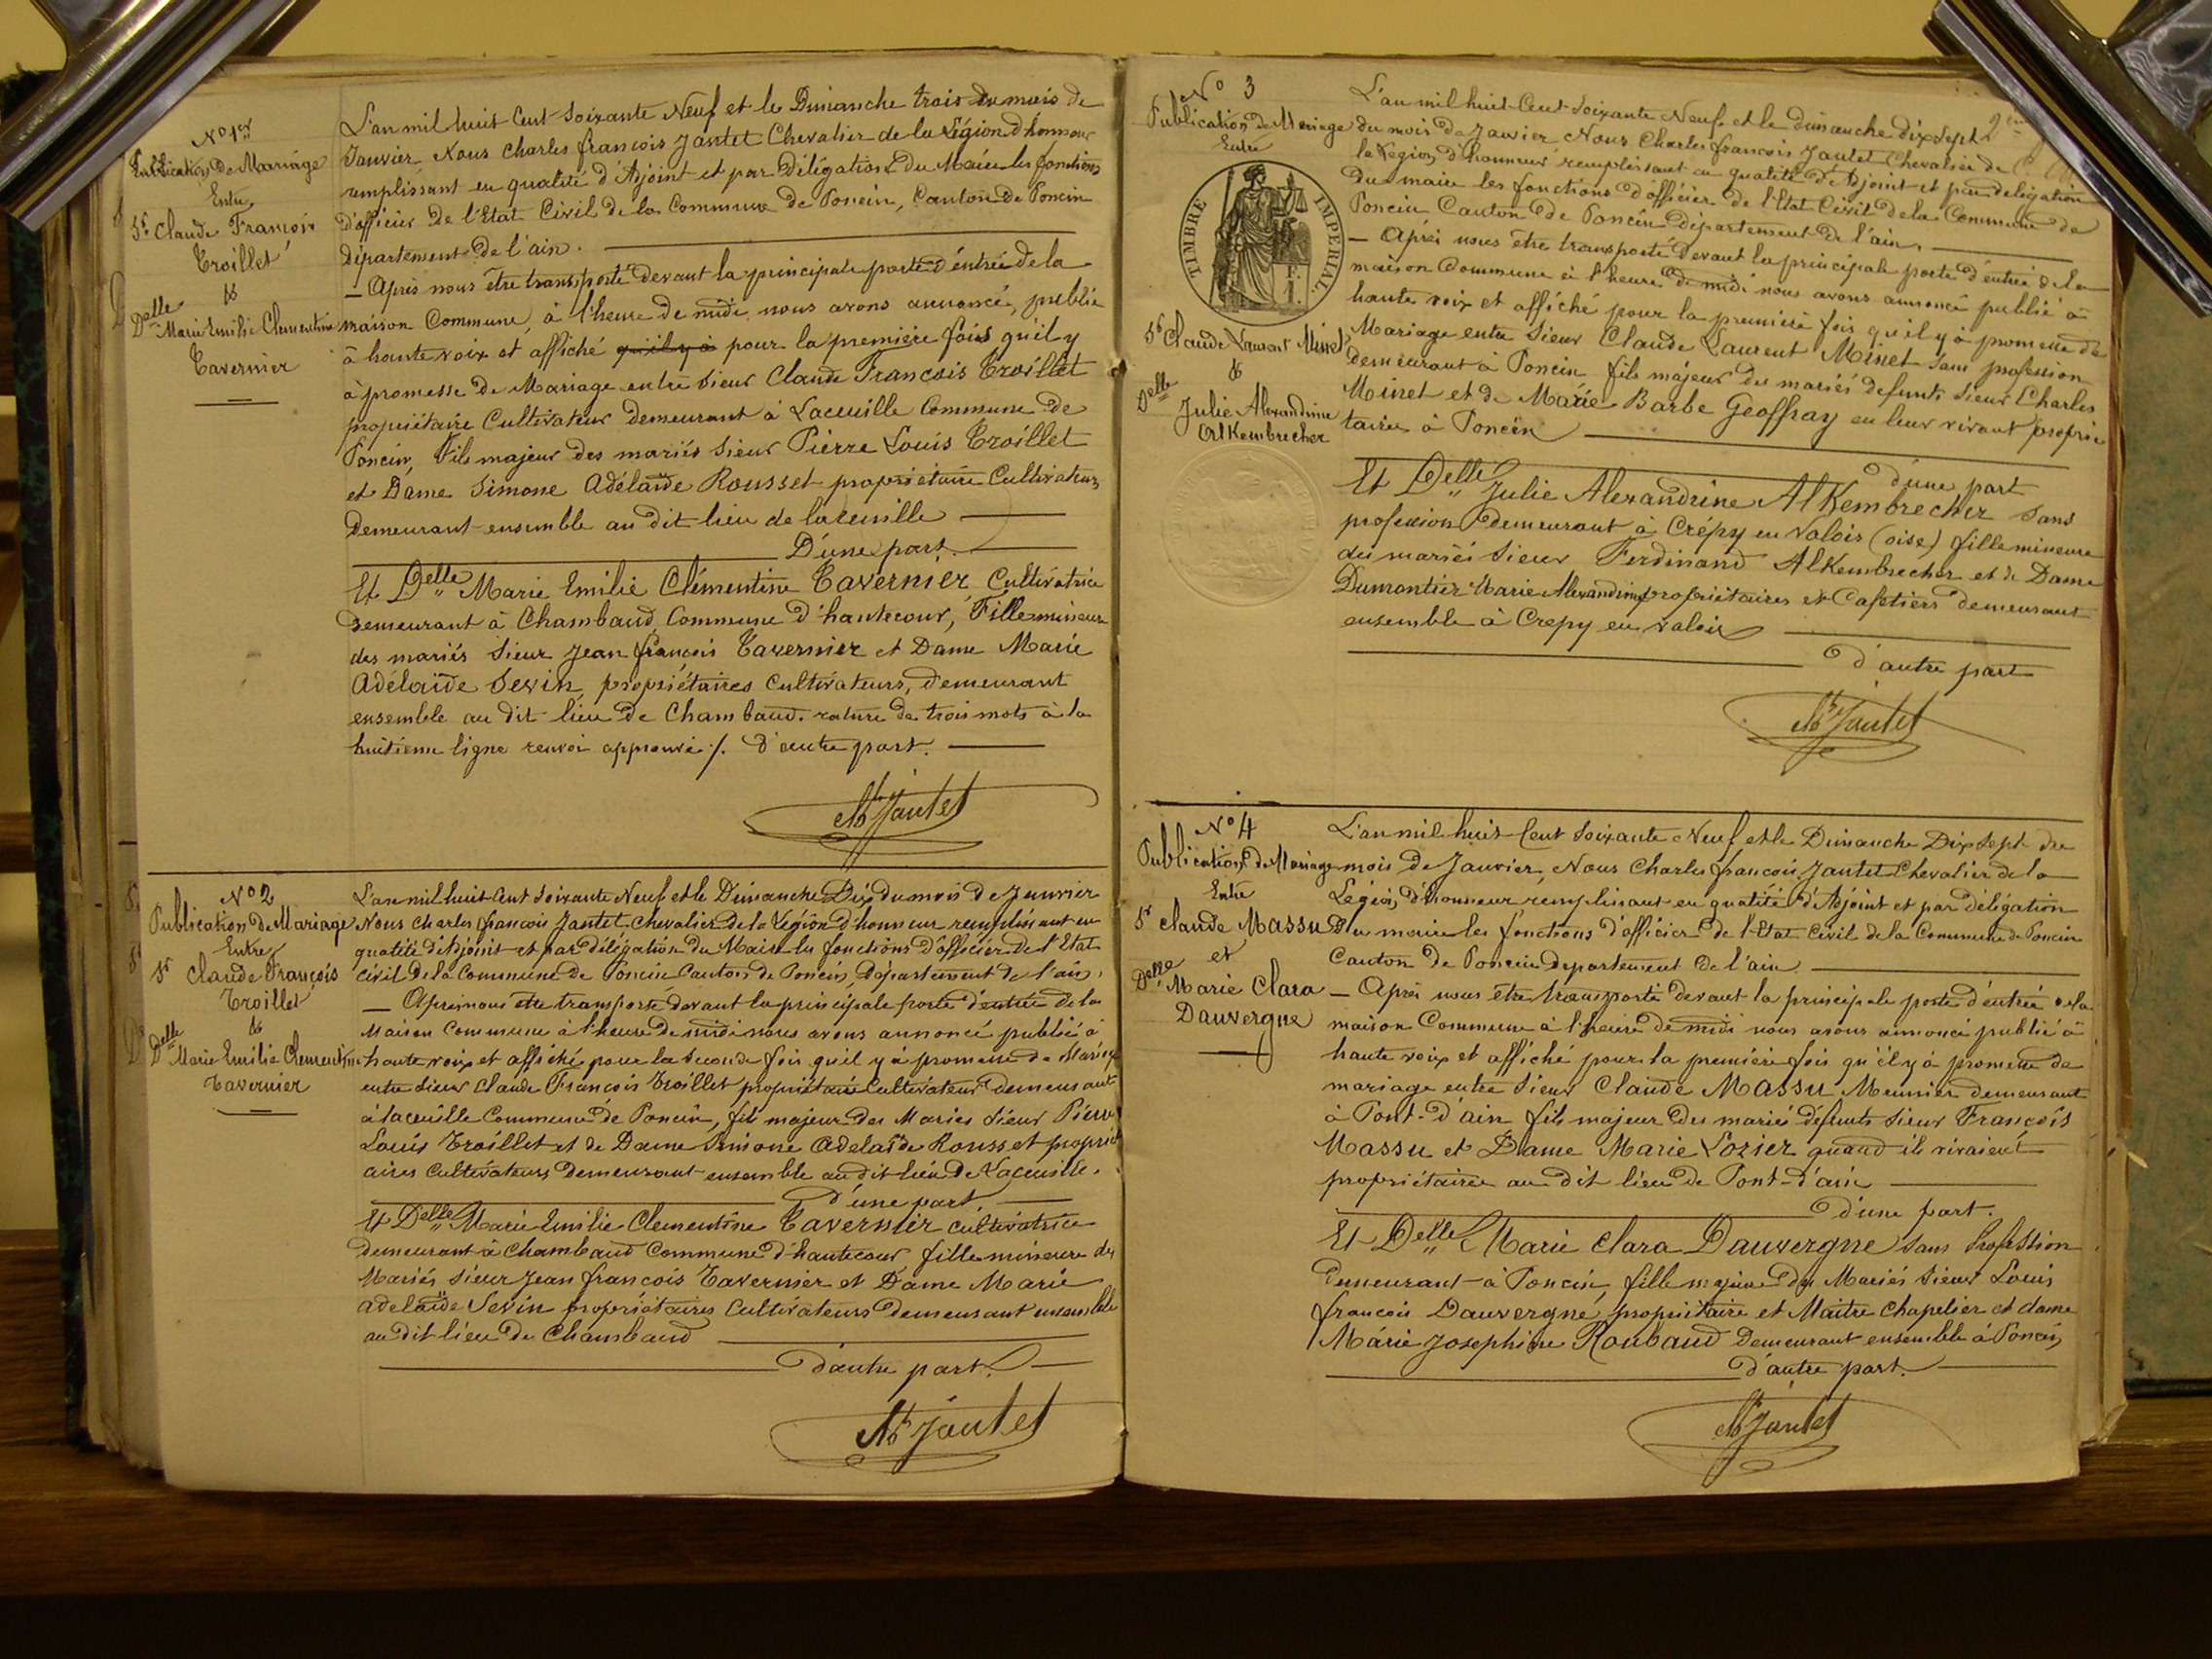 N° 1er
Publication De Mariage
Entre
Sr Claude François
Troillet
&
Delle Marie Emilie Clementine
Tavernier
L'an mil huit Cent Soixante Neuf et le Dimanche trois du mois de
Janvier Nous Charles françois Jantet Chevalier de la Légion d'honneur
remplissant en qualité d'Adjoint et par Délégation du Maire les fonctions
d'officier de l'Etat Civil de la Commune de Poncin, Canton de Poncin
département de l'ain.
— Après nous être transporté devant la principale porte d'entrée de la
maison Commune, à l'heure de midi, nous avons annoncé, publié
à haute voix et affiché qu'il y à pour la première fois qu'il y
à promesse de Mariage entre sieur Claude François Troillet
propriétaire Cultivateur demeurant à Lacueille Commune de
Poncin, Fils majeur des mariés Sieur Pierre Louis Troillet
et Dame Simone Adélaïde Rousset propriétaire Cultivateurs
demeurant ensemble au dit lieu de lacueille
D'une part.
Et Delle Marie Emilie Clémentine Tavernier, Cultivatrice
demeurant à Chambaud, Commune d'hautecour, Fille mineure
des mariés Sieur Jean françois Tavernier et Dame Marie
Adélaïde Sevin, propriétaires Cultivateurs, demeurant
ensemble au dit lieu de Chambaud. rature de trois mots à la
huitieme ligne renvoi approuvé /. D'autre part.
Ch Jantet
N° 2
Publication de Mariage
Entre
Sr Claude François
Troillet
&
Delle Marie Emilie Clementine
Tavernier
L'an mil huit Cent Soixante Neuf et le Dimanche Dix du mois de Janvier
Nous Charles françois Jantet, Chevalier de la Légion d'honneur remplissant en
qualité d'Adjoint et par délégation du Maire les fonctions d'officier de l'Etat
civil de la Commune de Poncin Canton de Poncin, Département de l'ain.
— Après nous être transporté devant la principale porte d'entrée de la
Maison Commune à l'heure de midi nous avons annoncé publié à
haute voix et affiché pour la seconde fois qu'il y à promesse de Mariage
entre sieur Claude François Troillet propriétaire Cultivateur demeurant
à lacueille Commune de Poncin, fils majeur des Mariés Sieur Pierre
Louis Troillet et de Dame Simone Adelaïde Rousset propriet
aires Cultivateurs demeurant ensemble au dit lieu de Lacueille.
d'une part.
Et Delle Marie Emilie Clementine Tavernier cultivatrice
demeurant à Chambaud Commune d'hautecour fille mineure des
Mariés Sieur Jean françois Tavernier et Dame Marie
adelaïde Sevin propriétaires Cultivateurs demeurant ensemble
au dit lieu de Chambaud
D'autre part.
Ch Jantet
2em
N° 3
Publication de Mariage
Entre
TIMBRE IMPERIAL
Sr Claude Laurent Minet
&
Delle Julie Alexandrine
AlKembrecher
L'an mil huit Cent Soixante Neuf et le dimanche dix sept
du mois de Janvier Nous Charles françois Jantet Chevalier de
la Légion d'honneur remplissant en qualité d'Adjoint et par délégation
Du maire les fonctions d'officier de l'Etat Civil de la Commune de
Poncin Canton de Poncin département de l'ain.
— Après nous être transporté devant la principale porte d'entrée de la
maison Commune à l'heure de midi nous avons annoncé publié à
haute voix et affiché pour la première fois qu'il y à promesse de
Mariage entre Sieur Claude Laurent Minet sans profession
demeurant à Poncin fils majeur des mariés defunts Sieur Charles
Minet et de Marie Barbe Geoffray en leur vivant proprié
taires à Poncin
D'une part
Et Delle Julie Alexandrine AlKembrecher sans
profession demeurant à Crépy en Valois (oise) fille mineure
des mariés Sieur Ferdinand AlKembrecher et de Dame
Dumontier Marie Alexandrine propriétaires et Cafetiers demeurant
ensemble à Crepy en valois
d'autre part
Ch Jantet
N° 4
Publication de Mariage
Entre
Sr Claude Massu
et
Delle Marie Clara
Dauvergne
L'an mil huit Cent Soixante Neuf et le Dimanche Dix Sept du
mois de Janvier, Nous Charles françois Jantet Chevalier de la
Légion d'honneur remplissant en qualité d'Adjoint et par délégation
Du maire les fonctions d'officier de l'Etat Civil de la Commune de Poncin
Canton de Poncin departement de l'ain.
— Après nous être transporté devant la principale porte d'entrée de la
maison Commune à l'heure de midi nous avons annoncé publié à
haute voix et affiché pour la première fois qu'il y à promesse de
mariage entre Sieur Claude Massu Meunier demeurant
à Pont-d'ain fils majeur des mariés défunts Sieur François
Massu et Dame Marie Lozier quand ils vivaient
propriétaires au dit lieu de Pont-d'ain
D'une part.
Et Delle Marie Clara Dauvergne sans Profession
Demeurant à Poncin, fille majeure des Mariés Sieur Louis
françois Dauvergne, propriétaire et Maitre Chapelier et dame
Marie Josephine Roubaud Demeurant ensemble à Poncin,
d'autre part.
Ch Jantet